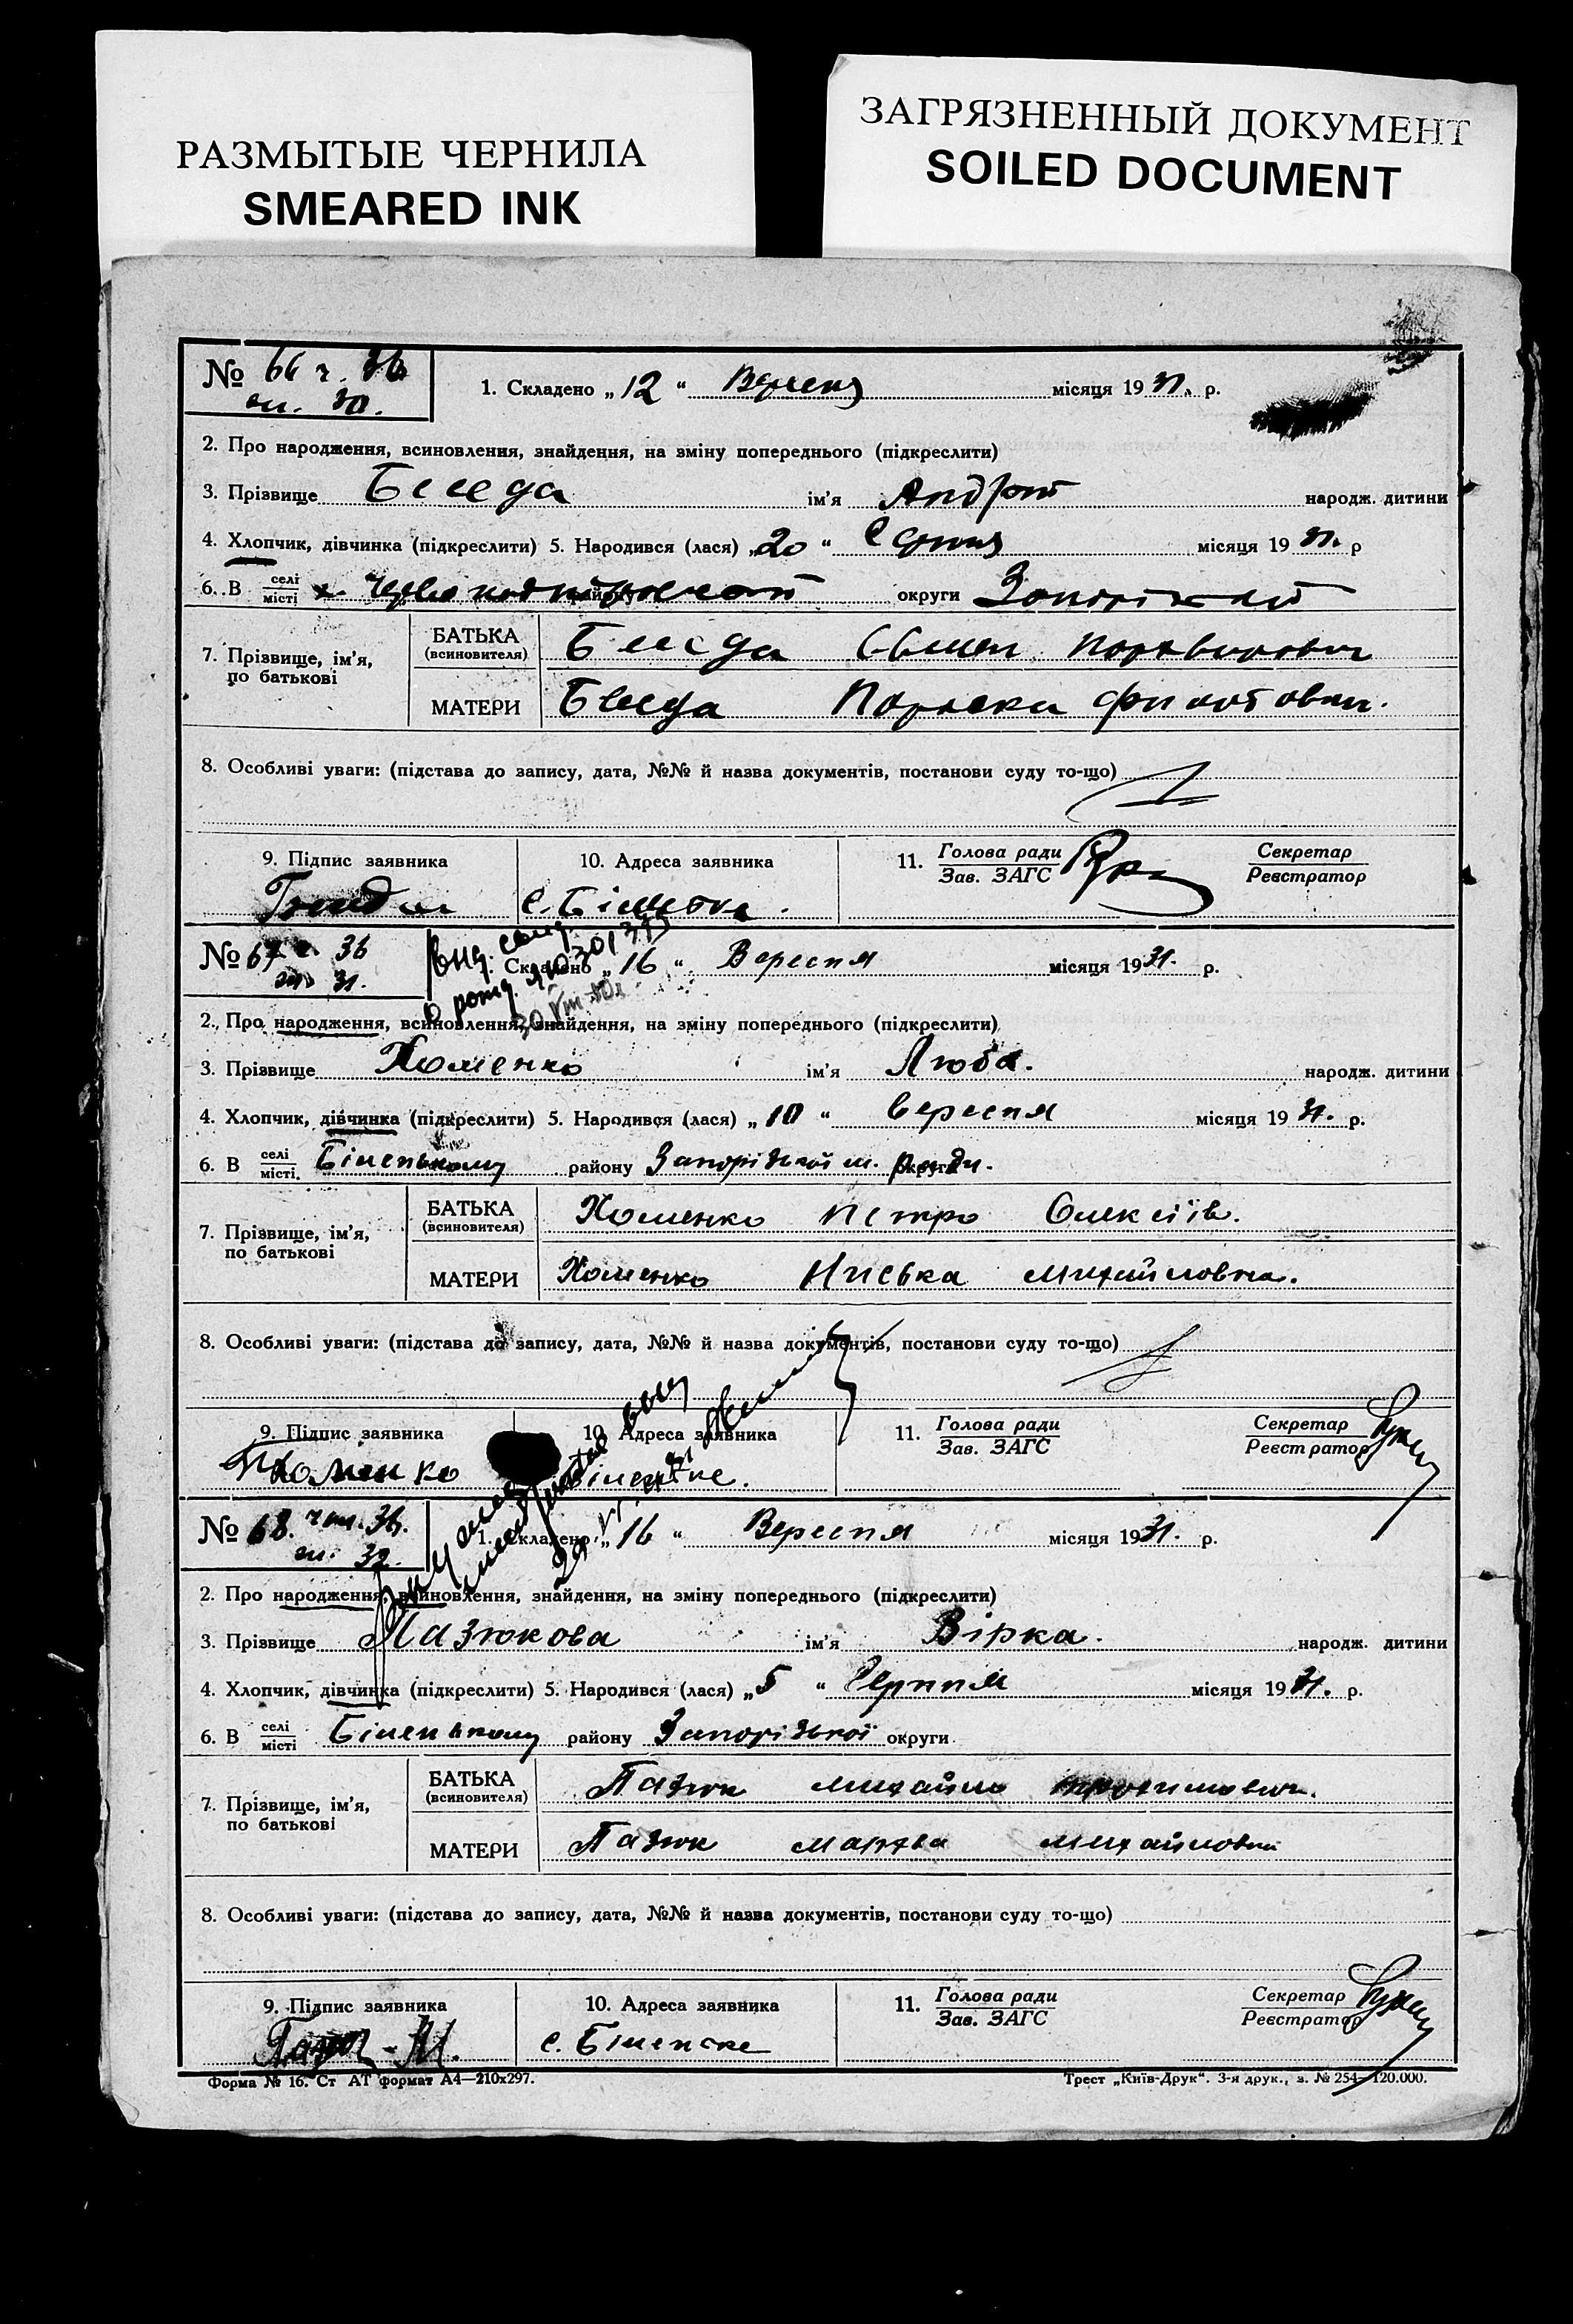 РАЗМЫТЫЕ ЧЕРНИЛА
SMEARED INK
ЗАГРЯЗНЕННЫЙ ДОКУМЕНТ
SOILED DOCUMENT
№ 66 ч. 36
30.
1. Складено „ 12 “ Вересня місяця 19 31. р.
2. Про народження, всиновлення, знайдення, на зміну попереднього (підкреслити)
3. Прізвище Беседа ім'я Андрій народж. дитини
4. Хлопчик, дівчинка (підкреслити) 5. Народився (лася) „ 20 “ Серпня місяця 19 31. р
6. В селі/місті х. району округи Запоріжжий
7. Прізвище, ім'я, по батькові
БАТЬКА (всиновителя) Беседа Семен
МАТЕРИ Беседа Параска
8. Особливі уваги: (підстава до запису, дата, №№ й назва документів, постанови суду то-що)
9. Підпис заявника
10. Адреса заявника с. Біленьке.
11. Голова ради/Зав. ЗАГС Секретар/Реєстратор
№ 67 ч. 36
31.
Выд. свид.
о рожд.
30 VIII
1. Складено „ 16 “ Вересня місяця 19 31. р.
2. Про народження, всиновлення, знайдення, на зміну попереднього (підкреслити)
3. Прізвище Хоменко ім'я Люба. народж. дитини
4. Хлопчик, дівчинка (підкреслити) 5. Народився (лася) „ 10 “ вересня місяця 19 31. р.
6. В селі/місті Біленькому району Запорізької м. Ради. округи
7. Прізвище, ім'я, по батькові
БАТЬКА (всиновителя) Хоменко Петро Олексіїв.
МАТЕРИ Хоменко Михайловна.
8. Особливі уваги: (підстава до запису, дата, №№ й назва документів, постанови суду то-що)
9. Підпис заявника Хоменко
10. Адреса заявника Біленьке.
11. Голова ради/Зав. ЗАГС Секретар/Реєстратор
№ 68. 36.
32.
1. Складено „ 16 “ Вересня місяця 19 31. р.
2. Про народження, всиновлення, знайдення, на зміну попереднього (підкреслити)
3. Прізвище Пазюкова ім'я Вірка. народж. дитини
4. Хлопчик, дівчинка (підкреслити) 5. Народився (лася) „ 5 “ Серпня місяця 19 31. р.
6. В селі/місті Біленькому району Запорізької округи
7. Прізвище, ім'я, по батькові
БАТЬКА (всиновителя) Пазюк Михайло
МАТЕРИ Пазюк Марфа Михайловна
8. Особливі уваги: (підстава до запису, дата, №№ й назва документів, постанови суду то-що)
9. Підпис заявника М.
10. Адреса заявника с. Біленске
11. Голова ради/Зав. ЗАГС Секретар/Реєстратор
Форма № 16. Ст АТ формат А4—210х297.
Трест „Київ-Друк“. 3-я друк., з. № 254—120.000.